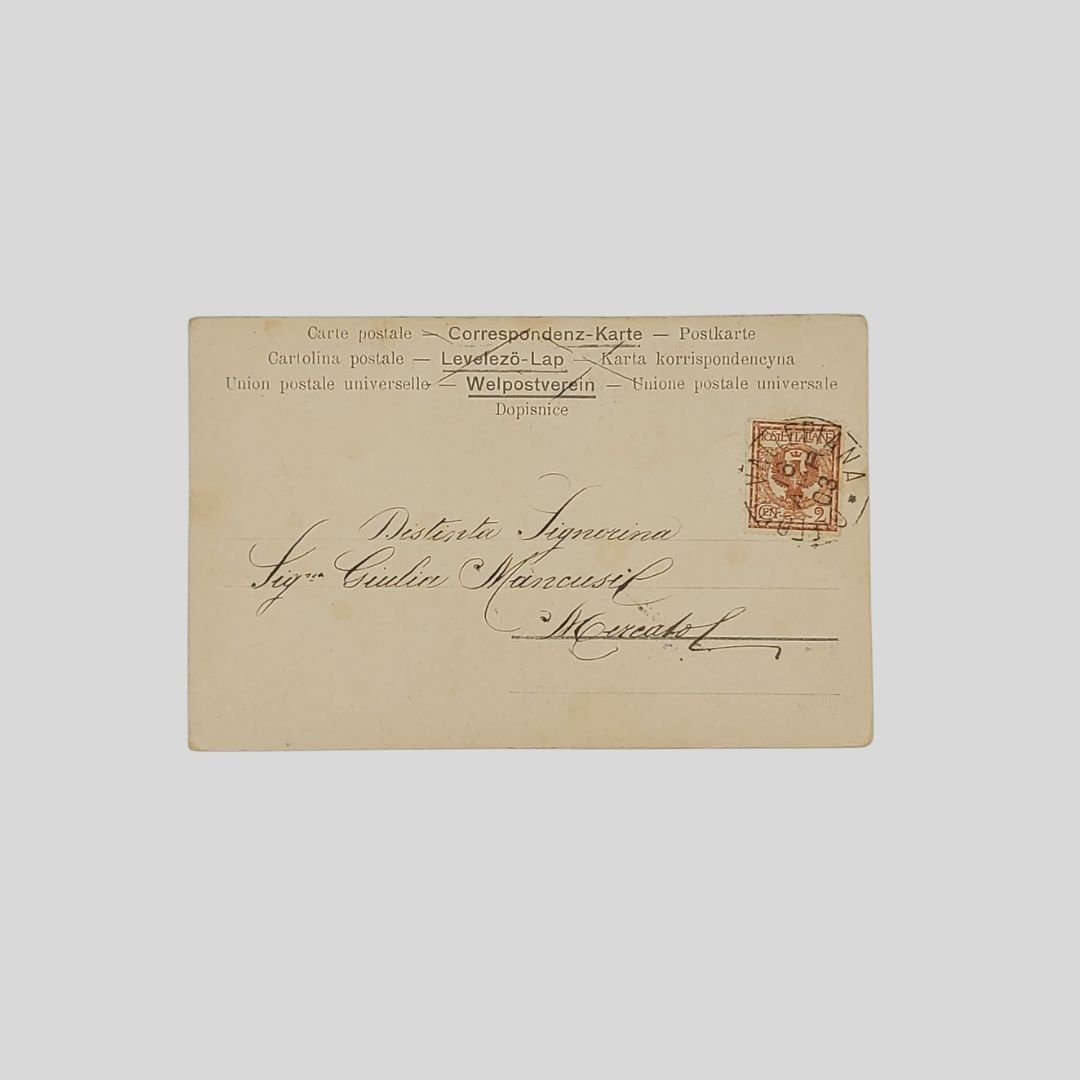 Carte postale — Correspondenz-Karte — Postkarte
Cartolina postale — Levelezö-Lap — Karta korrispondencyna
Union postale universelle — Welpostverein — Unione postale universale
Dopisnice
POSTE ITALIANE
CEN. 2
03
Distinta Signorina
Signa Giulia Mancusi
Mercato